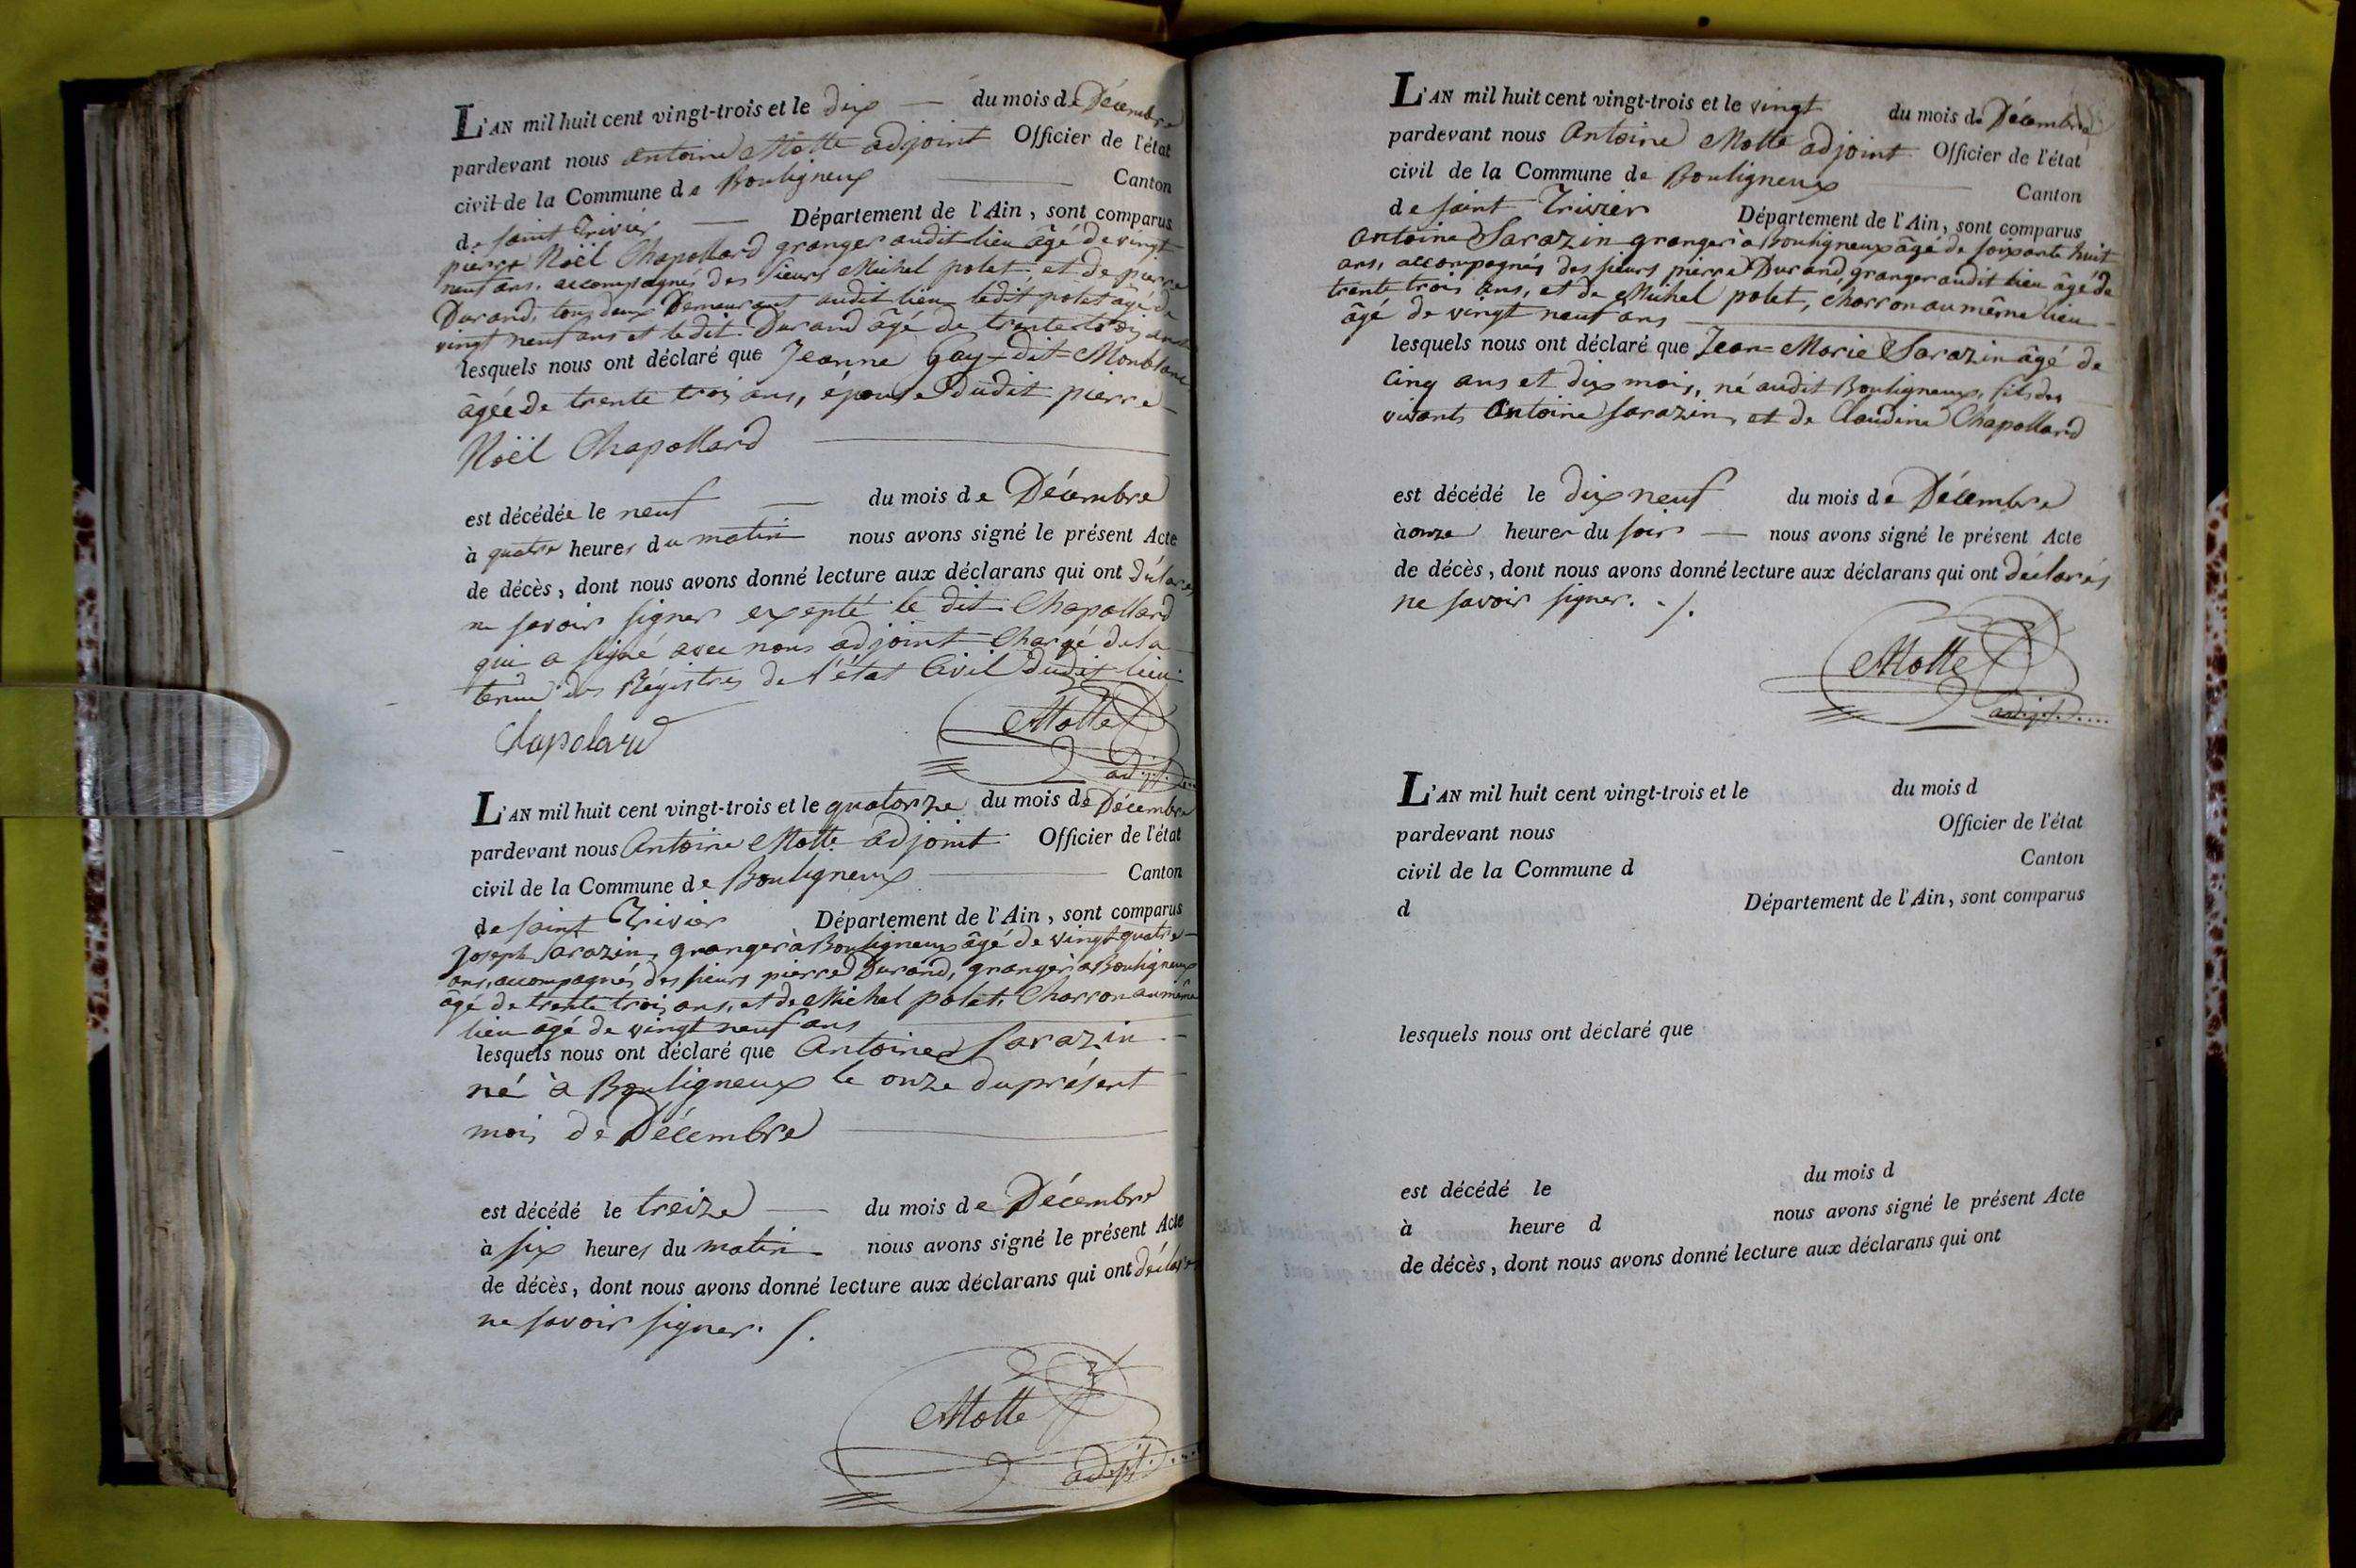 L'AN mil huit cent vingt-trois et le dix du mois de Décembre
pardevant nous antoine Motte adjoint Officier de l'état
civil de la Commune de Bouligneux Canton
de saint Trivier Département de l'Ain, sont comparus
pierre Noël Chapollard granger audit lieu âgé de vingt
neuf ans, accompagnés des sieurs Michel polet et de pierre
Durand, tous deux Demeurant audit lieu ledit polet âgé de
vingt neuf ans et ledit Durand âgé de trente trois ans
lesquels nous ont déclaré que Jeanne Gay-dit-Monblanc
âgée de trente trois ans, épouse Dudit pierre
Noël Chapollard
est décédée le neuf du mois de Décembre
à quatre heures du matin nous avons signé le présent Acte
de décès, dont nous avons donné lecture aux déclarans qui ont déclarés
ne savoir signer expepté le dit Chapollard
qui a signé avec nous adjoint Chargé de la
tenue des Régistres de l'état Civil Dudit lieu
Chapelard Motte
adjt.
L'AN mil huit cent vingt-trois et le quatorze du mois de Décembre
pardevant nous Antoine Motte adjoint Officier de l'état
civil de la Commune de Bouligneux Canton
de saint Trivier Département de l'Ain, sont comparus
Joseph Sarazin, granger à Bouligneux âgé de vingt quatre
ans, accompagnés des sieurs pierre Durand, granger à Bouligneux
âgé de trente trois ans, et de Michel polet, Charron au même
lieu âgé de vingt neuf ans
lesquels nous ont déclaré que Antoine Sarazin
né à Bouligneux le onze du présent
mois de Décembre
est décédé le treize du mois de Décembre
à six heures du matin nous avons signé le présent Acte
de décès, dont nous avons donné lecture aux déclarans qui ont déclarés
ne savoir signer. /.
Motte
adjt.
L'AN mil huit cent vingt-trois et le vingt du mois de Décembre
pardevant nous Antoine Motte adjoint Officier de l'état
civil de la Commune de Bouligneux Canton
de saint Trivier Département de l'Ain, sont comparus
Antoine Sarazin granger à Bouligneux âgé de soixante huit
ans, accompagnés des sieurs pierre Durand, granger audit lieu âgé de
trente trois ans, et de Michel polet, charron au même lieu
âgé de vingt neuf ans
lesquels nous ont déclaré que Jean-Marie Sarazin âgé de
Cinq ans et dix mois, né audit Bouligneux, fils des
vivants Antoine Sarazin, et de Claudine Chapollard
est décédé le dix neuf du mois de Décembre
à onze heures du soir nous avons signé le présent Acte
de décès, dont nous avons donné lecture aux déclarans qui ont déclarés
ne savoir signer. /.
Motte
adjt.
L'AN mil huit cent vingt-trois et le du mois d
pardevant nous Officier de l'état
civil de la Commune d Canton
d Département de l'Ain, sont comparus
lesquels nous ont déclaré que
est décédé le du mois d
à heure d nous avons signé le présent Acte
de décès, dont nous avons donné lecture aux déclarans qui ont